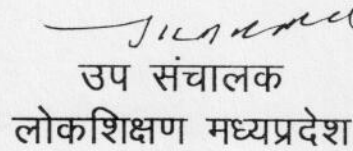 उप संचालक
लोकशिक्षण मध्यप्रदेश